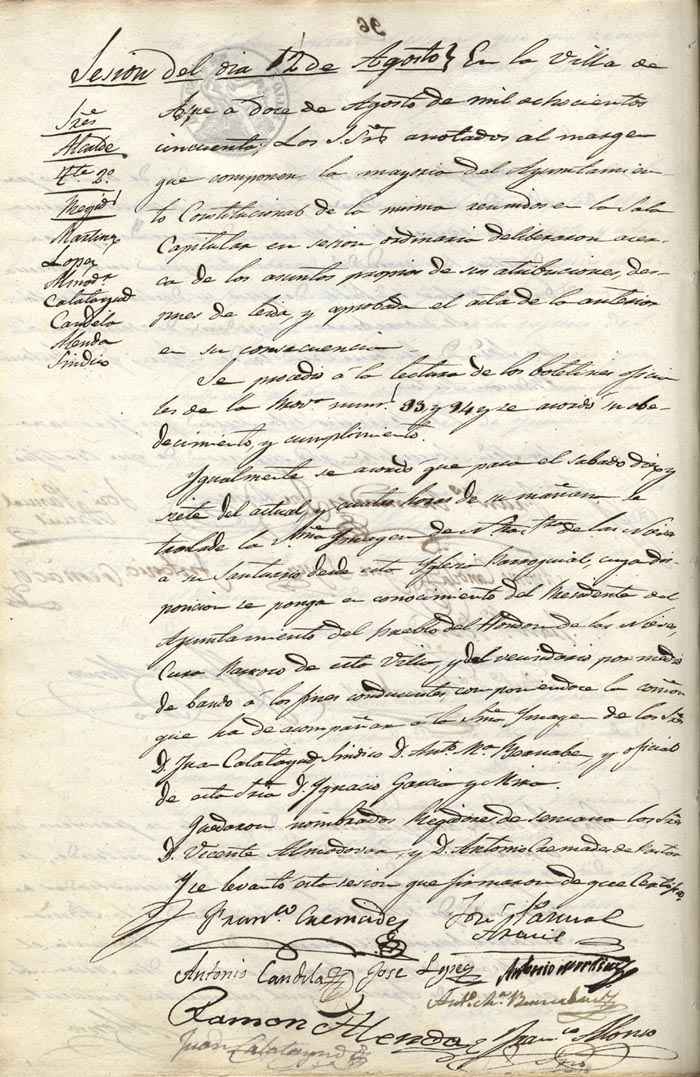 96
Sesion del dia 12 de Agosto} En la Villa de
Aspe a doce de Agosto de mil ochocientos
cincuenta; Los S.S.res anotados al margen
que componen la mayoria del Ayuntamien
to Constitucional de la misma reunidos en la Sala
Capitular en sesion ordinaria deliberaron acer-
ca de los asuntos propios de sus atribuciones, des-
pues de leida y aprobada el acta de la anterior
en su consecuencia
Sres
Alcalde
Tte. 2o.
Regid.s
Martinez
Lopez
Almodr
Calatayud
Candela
Alenda
Sindico
Se procedio á la lectura de los boletines oficia
les de la Prova. nums. 93 y 94 y se acordó su obe-
decimiento, y cumplimiento.
Igualmente se acordó que para el sabado diez y
siete del actual, y cuatro horas de su mañana se
traslade la Sta. Imagen de Ntra. Sra. de las Nieves
a su Santuario desde esta Iglesia Parroquial, cuya dis-
posicion se ponga en conocimiento del Presidente del
Ayuntamiento del pueblo del Hondon de las Nieves,
Cura Parroco de esta Villa, y del vecindario por medio
de bando á los fines conducentes, componiendose la comision
que ha de acompañar á la Sta. Imagen de los Sres.
D. Juan Calatayud Sindico D. Anto. Ma. Bernabe, y oficial
de esta Sria. D. Ignacio Garcia y Miro.
Quedaron nombrados Regidores de semana los Sres.
D. Vicente Almodovar, y D. Antonio Cremades de Pastor
Y se levantó esta sesion que firmaron de que Certifico,
Franco. Cremades José Pascual
Antonio Candela José Lopez Antonio Martinez
Anto. Ma. Bernabe
Ramon Alenda Franco. Alonso
Juan Calatayud Srio